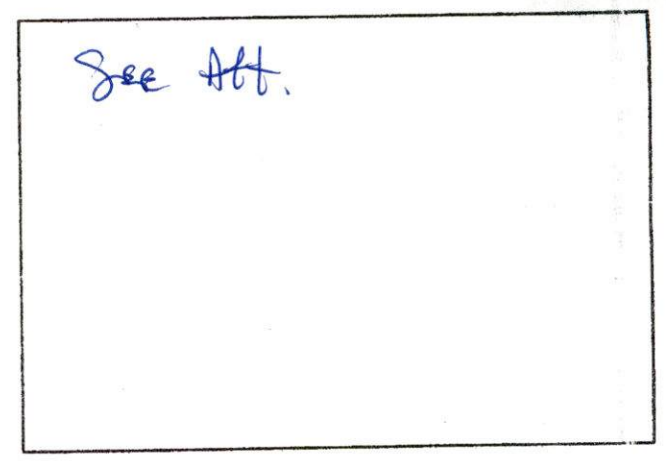 See Att.